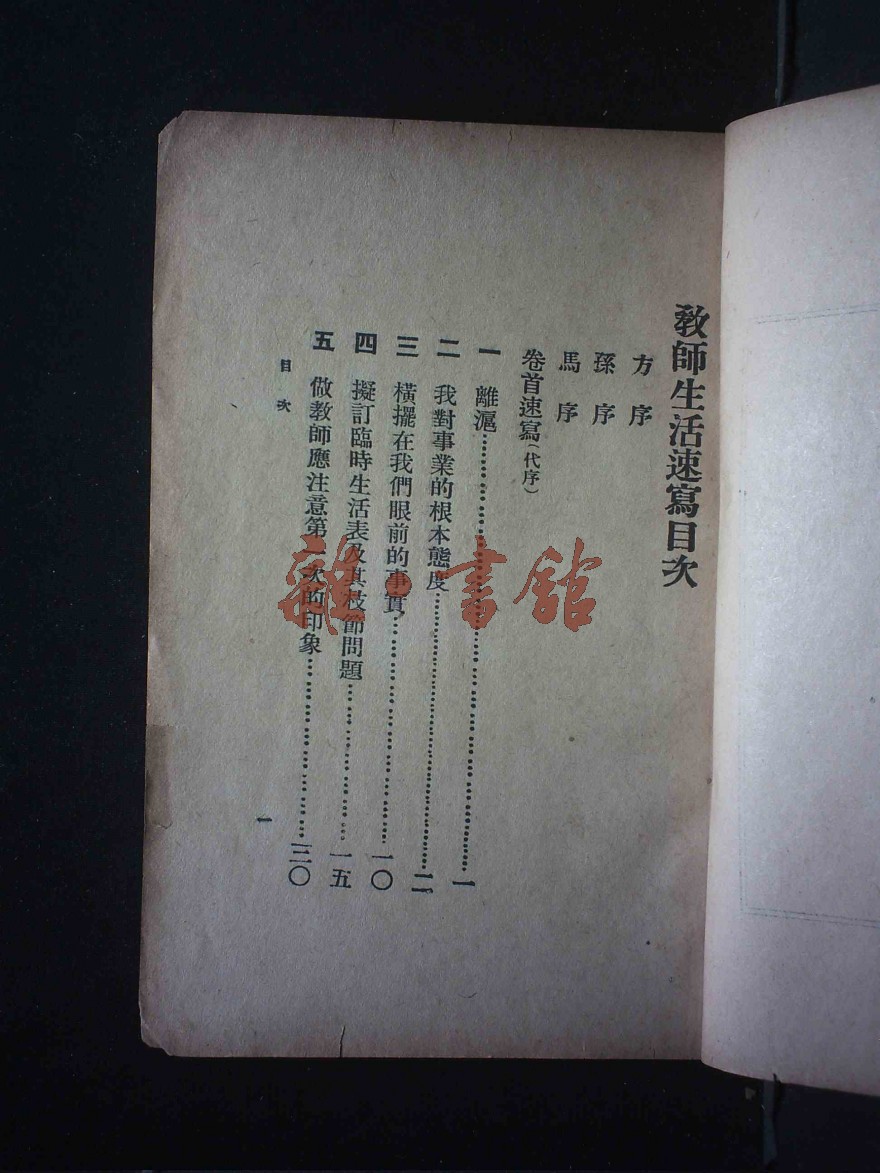 教師生活速寫目次
方序
孫序
馬序
卷首速寫(代序)
一 離滬…………一
二 我對事業的根本態度…………二
三 橫擺在我們眼前的事實…………一〇
四 擬訂臨時生活表及其枝節問題…………一五
五 做教師應注意第一次的印象…………三〇
目次
一
雜·書館